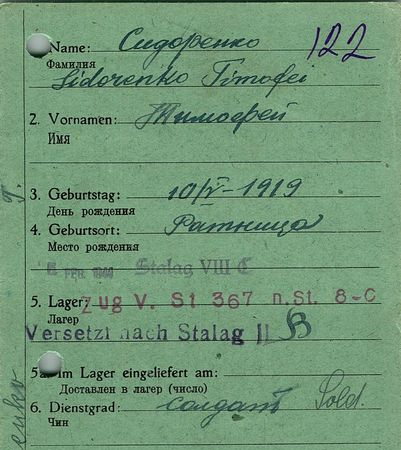 1. Name: Сидоренко 122
Фамилия
Sidorenko Timofei
2. Vornamen: Тимофей
Имя
3. Geburtstag: 10/V-1919
День рождения
4. Geburtsort: Ратница
Место рождения
FEB. 1944 Stalag VIII C
5. Lager: Zug V. St 367 n.St. 8-C
Лагер
Versetzt nach Stalag II B
5a. Im Lager eingeliefert am:
Доставлен в лагер (число)
6. Dienstgrad: солдат Sold.
Чин